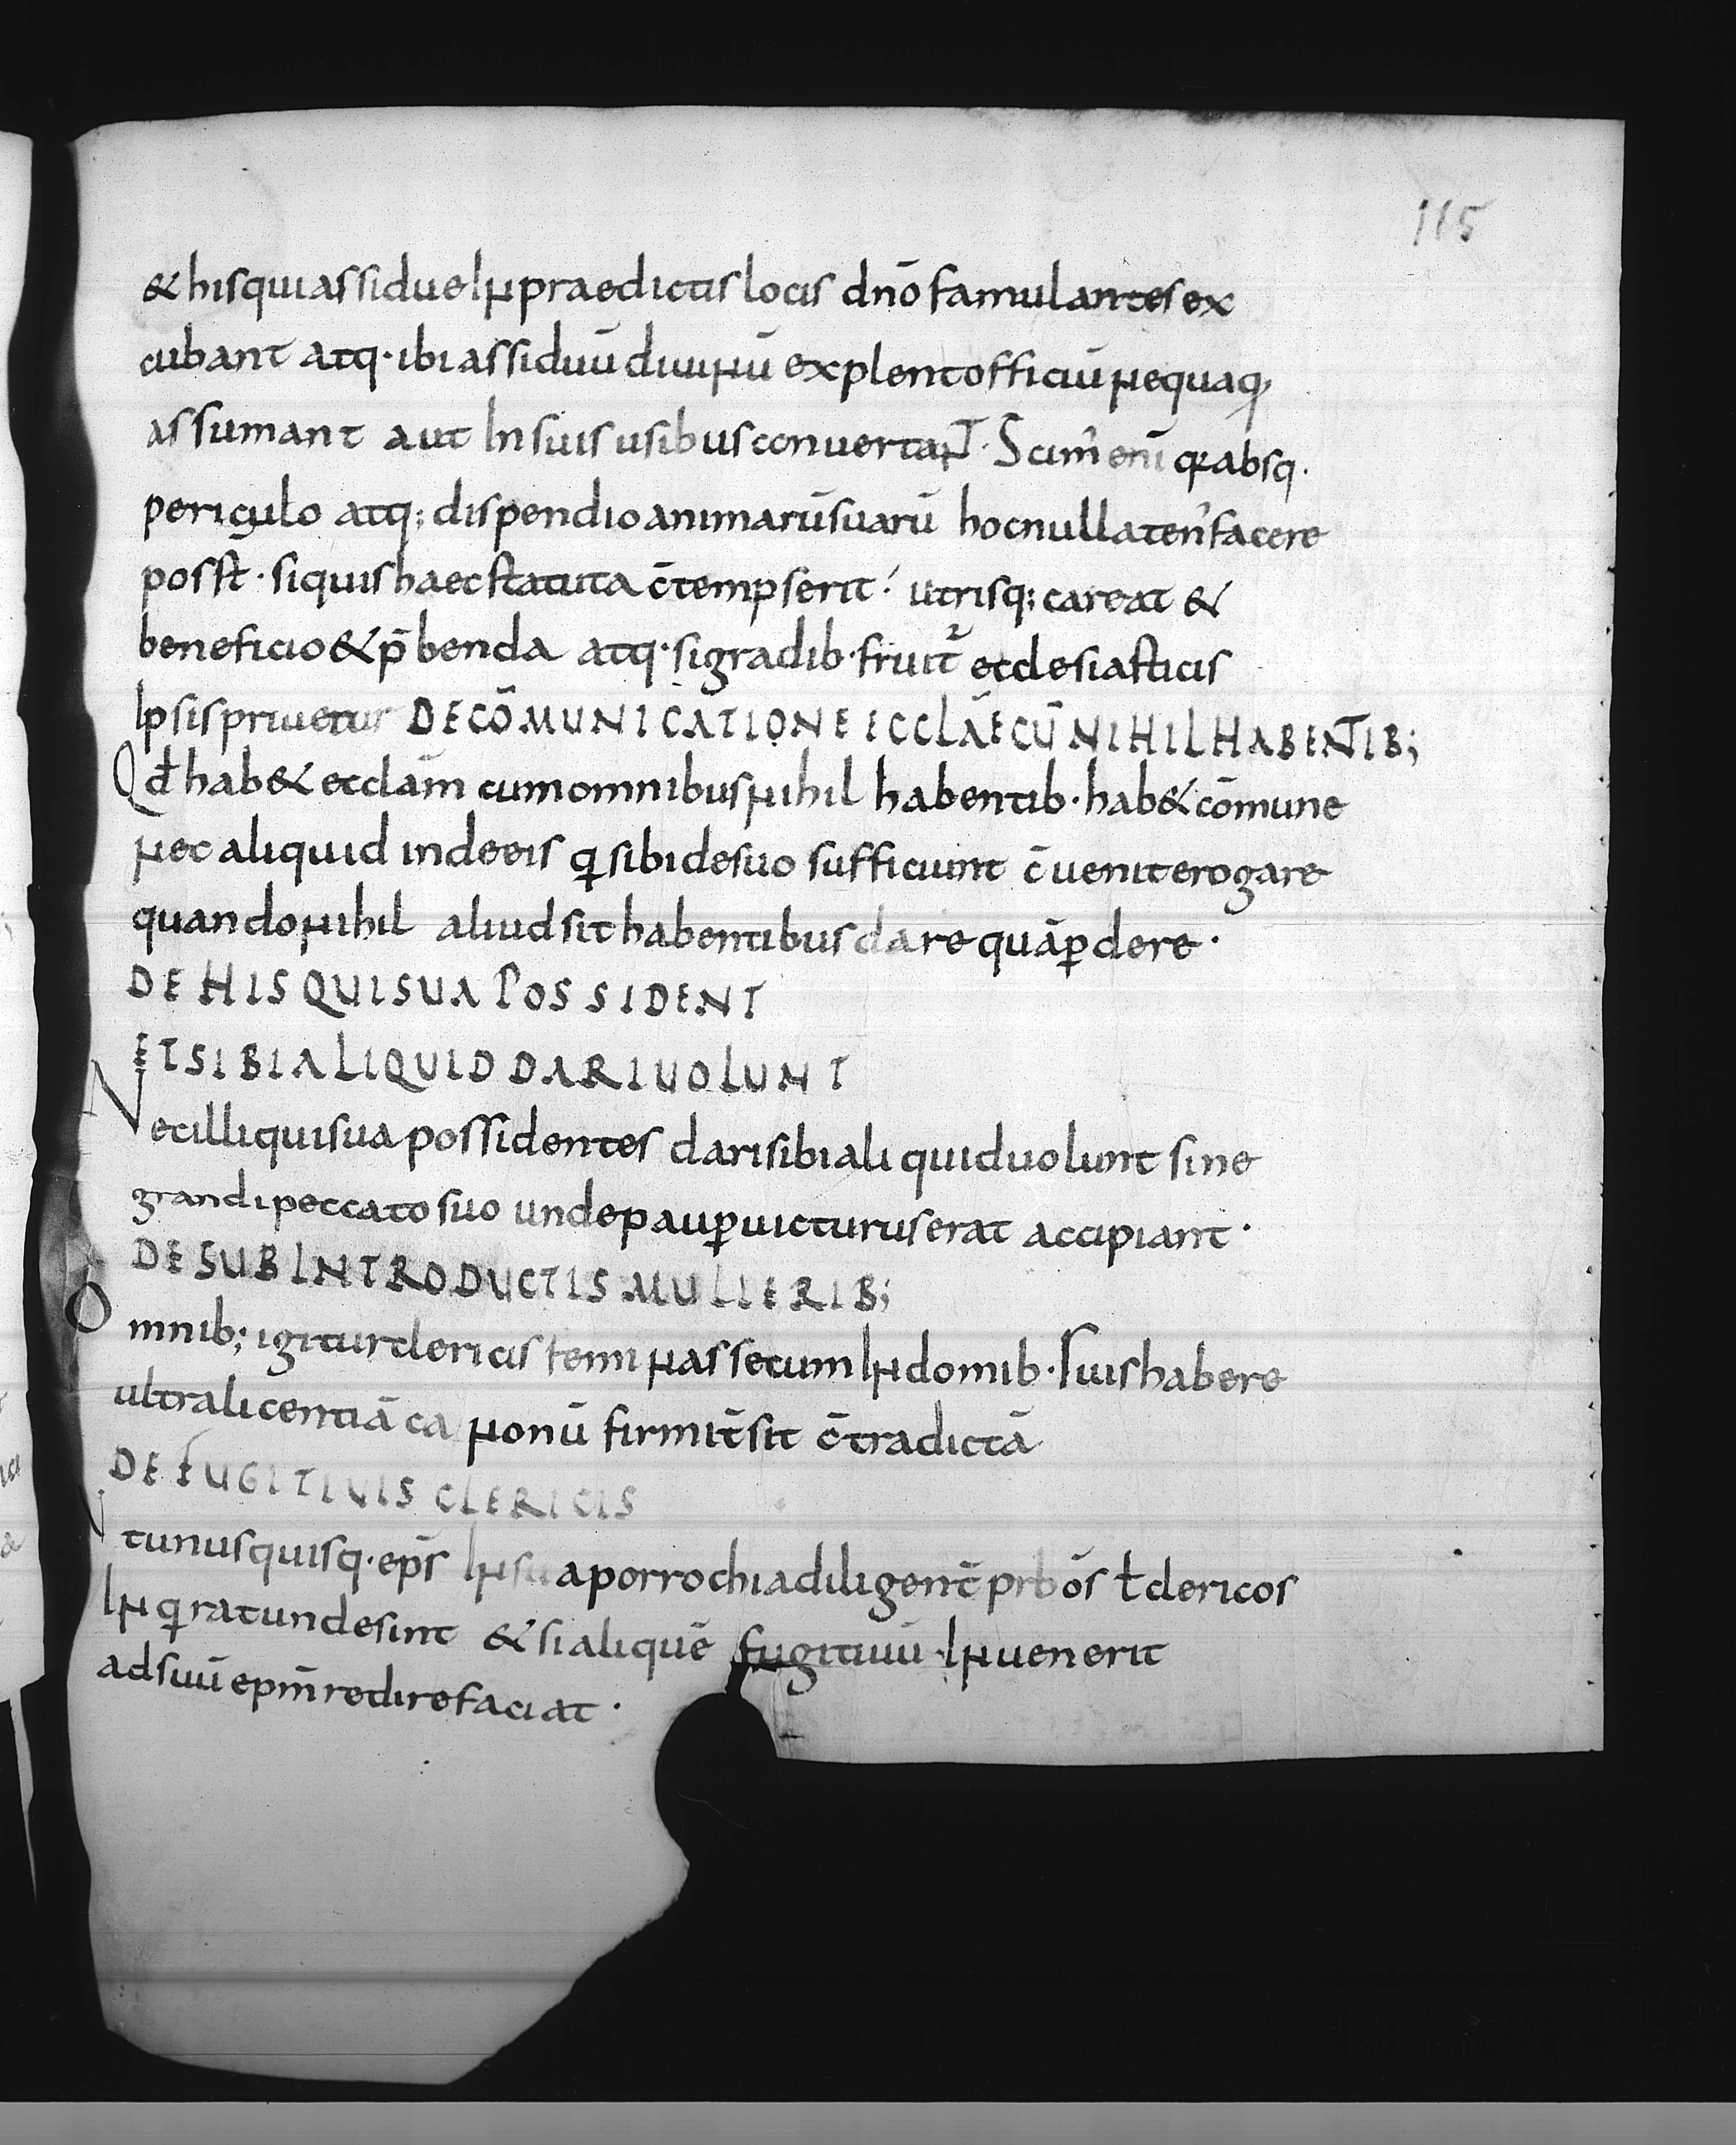 115
& his qui assidue In praedictis locis dnō famulantes ex
cubant atq· ibi assiduū diuinū explent officiū nequaq̄
assumant aut In suis usibus conuertaNT· Scim' enī qđ absq·
periculo atq; dispendio animarū suarū hoc nullaten' facere
posst· si quis haec statuta c̄tempserit· utrisq; careat &
beneficio & p̄benda atq· si gradib· fruit² ecclesiasticis
Ipsis priuetur DE COMUNICATIONE ECCLAE CŪ NIHIL HABENTIB;
Qđ hab& ecclām cum omnibus nihil habentib· hab& cōmune
nec aliquid inde eis q sibi de suo sufficiunt c̄uenit erogare
quando nihil aliud sit habentibus dare quā ꝑdere·
DE HIS QUI SUA POSSIDENT
ET SIBI ALIQUID DARI UOLUNT
Nec illi qui sua possidentes dari sibi aliquid uolunt sine
grandi peccato suo unde pauꝑ uicturus erat accipiant·
DE SUBINTRODUCTIS MULIERIB;
Omnib; igitur clericis feminas secum In domib· suis habere
ultra licentiā canonū firmit̄ sit c̄tradictā
DE FUGITIUIS CLERICIS
Ut unusquisq· ep̄s In sua porrochia diligent̄ prb̄os ł clericos
Inqirat unde sint & si aliquē fugitiuū Inuenerit
ad suū epm̄ redire faciat·